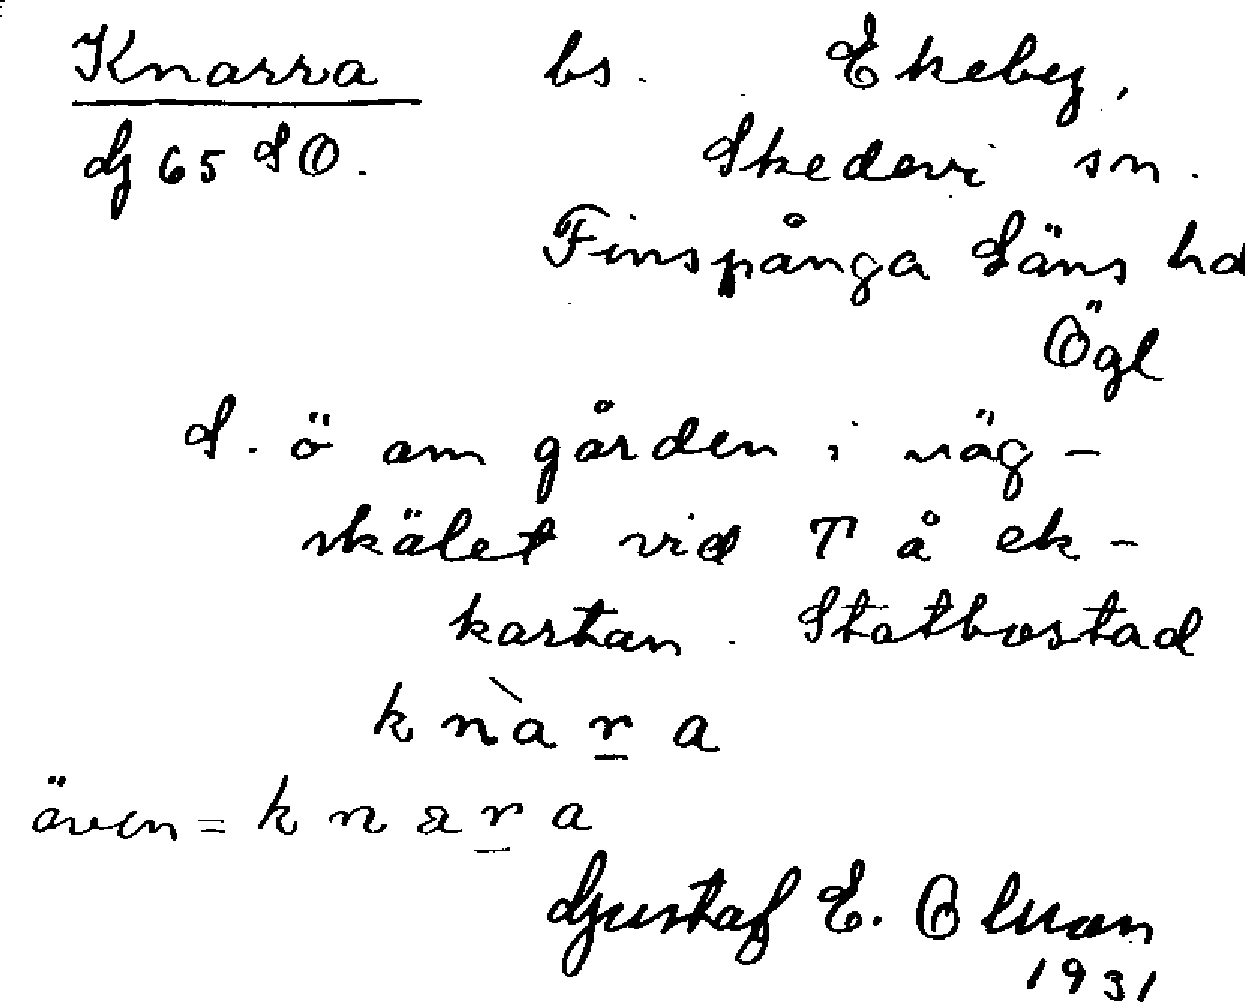 Knarra bs. Ekeby,
G 65 SO. Skedevi sn.
Finspånga Läns hd
Ögl
S. ö om gården i väg-
skälet vid T å ek-
kartan. Statbostad
k n à r a
även = k n a r a
Gustaf E. Olsson
1931